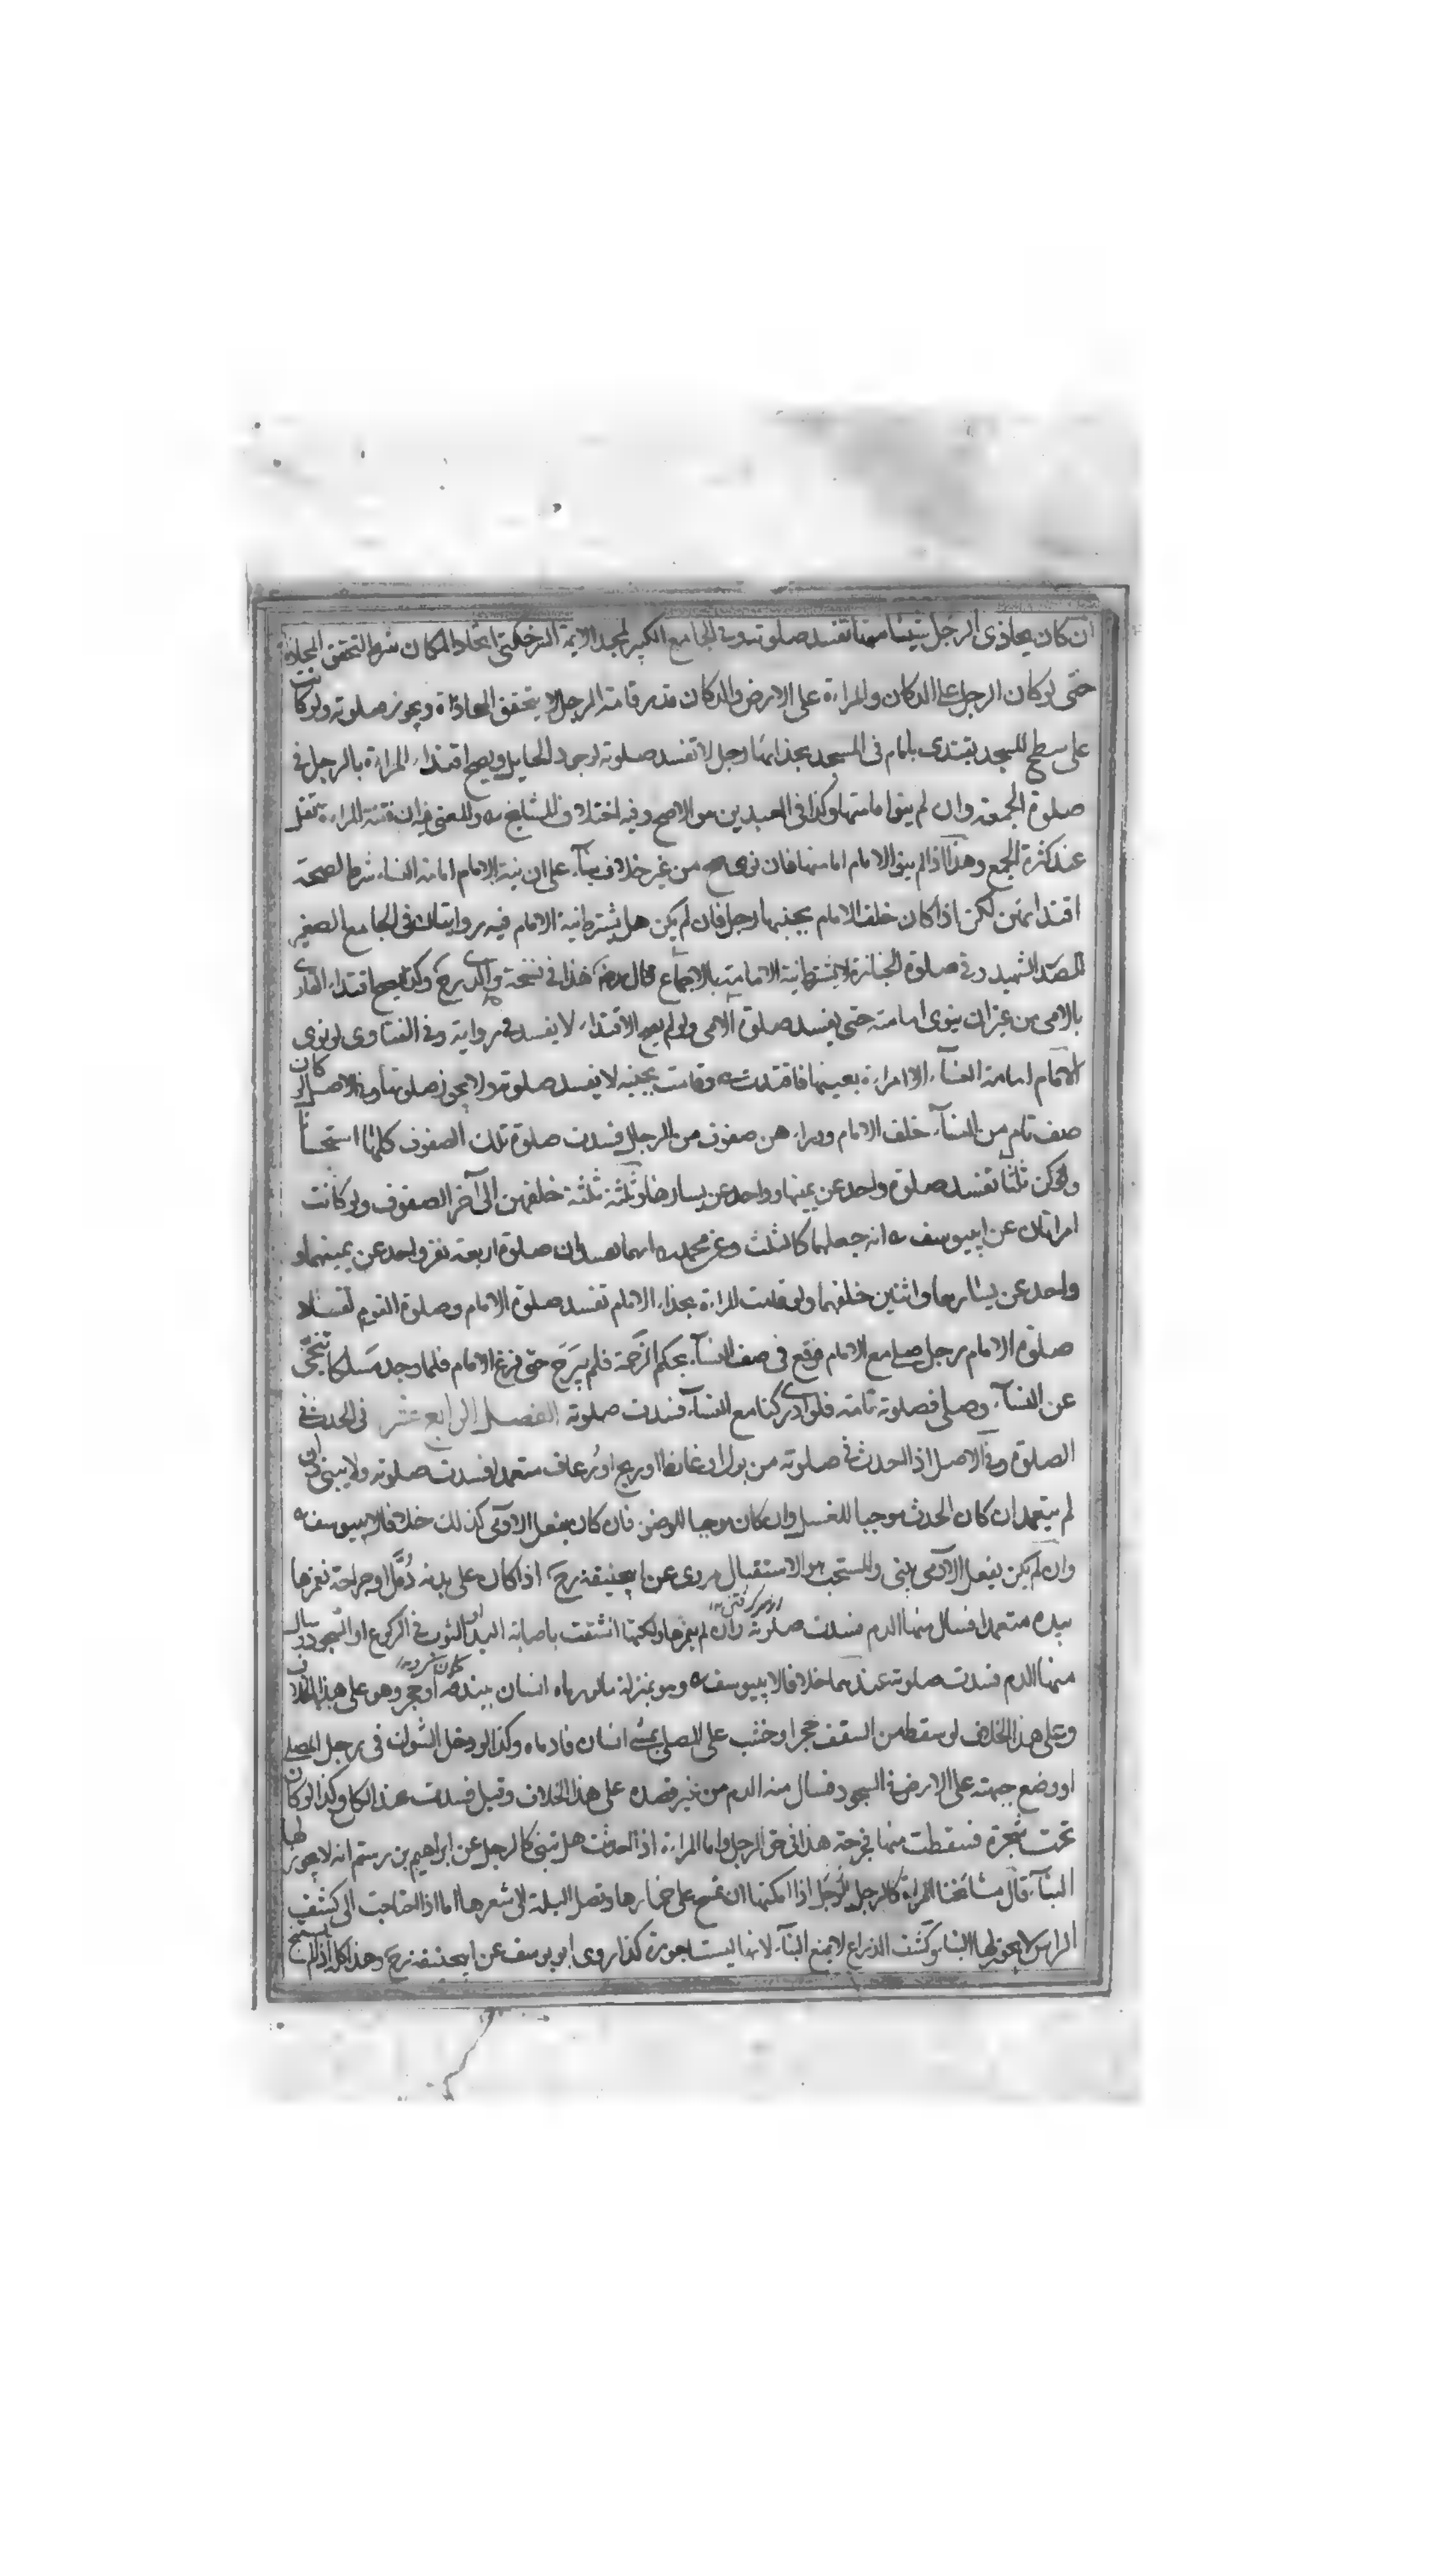 ان كان يحاذى الرجل شيئا منها تفسد صلوته وفى الجامع الكبير لمجد الايمة الترخكتى اتحاد المكان شرط لتحقق المحاذاة
حتى لو كان الرجل على الدكان والمراءة على الارض والدكان قدر قامة الرجل لا يتحقق المحاذاة ويجوز صلوته ولو كانت
على سطح المسجد يقتدى بامام فى المسجد بحذائها رجل لا تفسد صلوته لوجود الحايل ويصح اقتداء المراءة بالرجل فى
صلوة الجمعة وان لم ينوا مامتها وكذا فى العيدين هو الاصح وفيه اختلاف المشايخ والمعنى فيه ان فتنة المراءة تقل
عند كثرة الجمع وهذا اذا لم ينو الامام امامتها فان نوى صح من غير خلاف بنآء على ان نية الامام امامة النساء شرط لصحة
اقتدائهن لكن اذا كان خلف الامام بجنبها رجل فان لم يكن هل يشترط نية الامام فيه روايتان فى الجامع الصغير
للصدر الشهيد وفى صلوة الجنازة لا يشترط نية الامامة بالاجماع قال رض هذا فى نسخة والدى رح وكذا يصح اقتداء القارى
بالامى من غير ان ينوى امامته حتى يفسد صلوة الامى ولو لم يصح الاقتداء لا يفسد فى رواية وفى الفتاوى لو نوى
الامام امامة النسآء الا امراءة بعينها فاقتدت به وقامت بجنبه لا يفسد صلوته ولا يجوز صلوتها وفى الاصل لو كان
صف تام من النسآء خلف الامام ووراءهن صفوف من الرجال فسدت صلوة تلك الصفوف كلها استحسانا
ولو كن ثلثا تفسد صلوة واحد عن يمينها وواحد عن يسارها وثلثة ثلثة خلفهن الى آخر الصفوف ولو كانت
امراتان عن ابيوسف انه جعلهما كالثلث وعن محمد انهما يفسدان صلوة اربعة نفر واحد عن يمينهما و
واحد عن يسارهما واثنين خلفهما ولو قامت المراءة بحذاء الامام تفسد صلوة الامام وصلوة القوم لفساد
صلوة الامام رجل صلى مع الامام فوقع فى صف النسآء بحكم الزحمة فلم يبرح حتى فرغ الامام فلما وجد مسلكا تنحى
عن النسآء وصلى فصلوته تامة فلو ادى ركنا مع النسآء فسدت صلوته الفصل الرابع عشر فى الحدث فى
الصلوة وفى الاصل اذا احدث فى صلوته من بول او غايط او ريح او رعاف متعمدا فسدت صلوته ولا يبنى وان
لم يتعمد ان كان الحدث موجبا للغسل وان كان موجبا للوضوء فان كان بفعل الآدمى كذلك خلافا لابييوسف
وان لم يكن بفعل الآدمى يبنى والمستحب هو الاستقبال مروى عن ابيحنيفة رح اذا كان على بدنه دمل او جراحة فغمزها
بيده متعمدا فسال منها الدم فسدت صلوته وان لم يغمزها ولكنها انشقت باصابة اليد او الثوب فى الركوع او السجود وسال
منها الدم فسدت صلوته عندهما خلافا لابييوسف وهو بمنزلة مالو رماه انسان ببندقة او حجر وهو على هذا الخلاف
وعلى هذا الخلاف لو سقط من السقف حجر او خشب على المصلى بمشى انسان فادماه وكذا لو دخل الشوك فى رجل المصلى
او وضع جبهته على الارض فى السجود فسال منه الدم من غير قصده على هذا الخلاف وقيل فسدت عند الكل وكذا لو كان
تحت شجرة فسقطت منها فجرحته هذا فى حق الرجل واما المراءة اذا احدثت هل تبنى كالرجل عن ابراهيم بن رستم انه لا يجوز لها
البنآء قال مشائخنا المراءة كالرجل اذا امكنها ان تمسح على خمارها وتصل البلة الى شعرها اما اذا احتاجت الى كشف
الراس لا يجوز لها البنا وكشف الذراع لا يمنع البنآء لانها ليست بعورة كذا روى ابو يوسف عن ابيحنيفة رح وهذا كله اذا لم يستنج